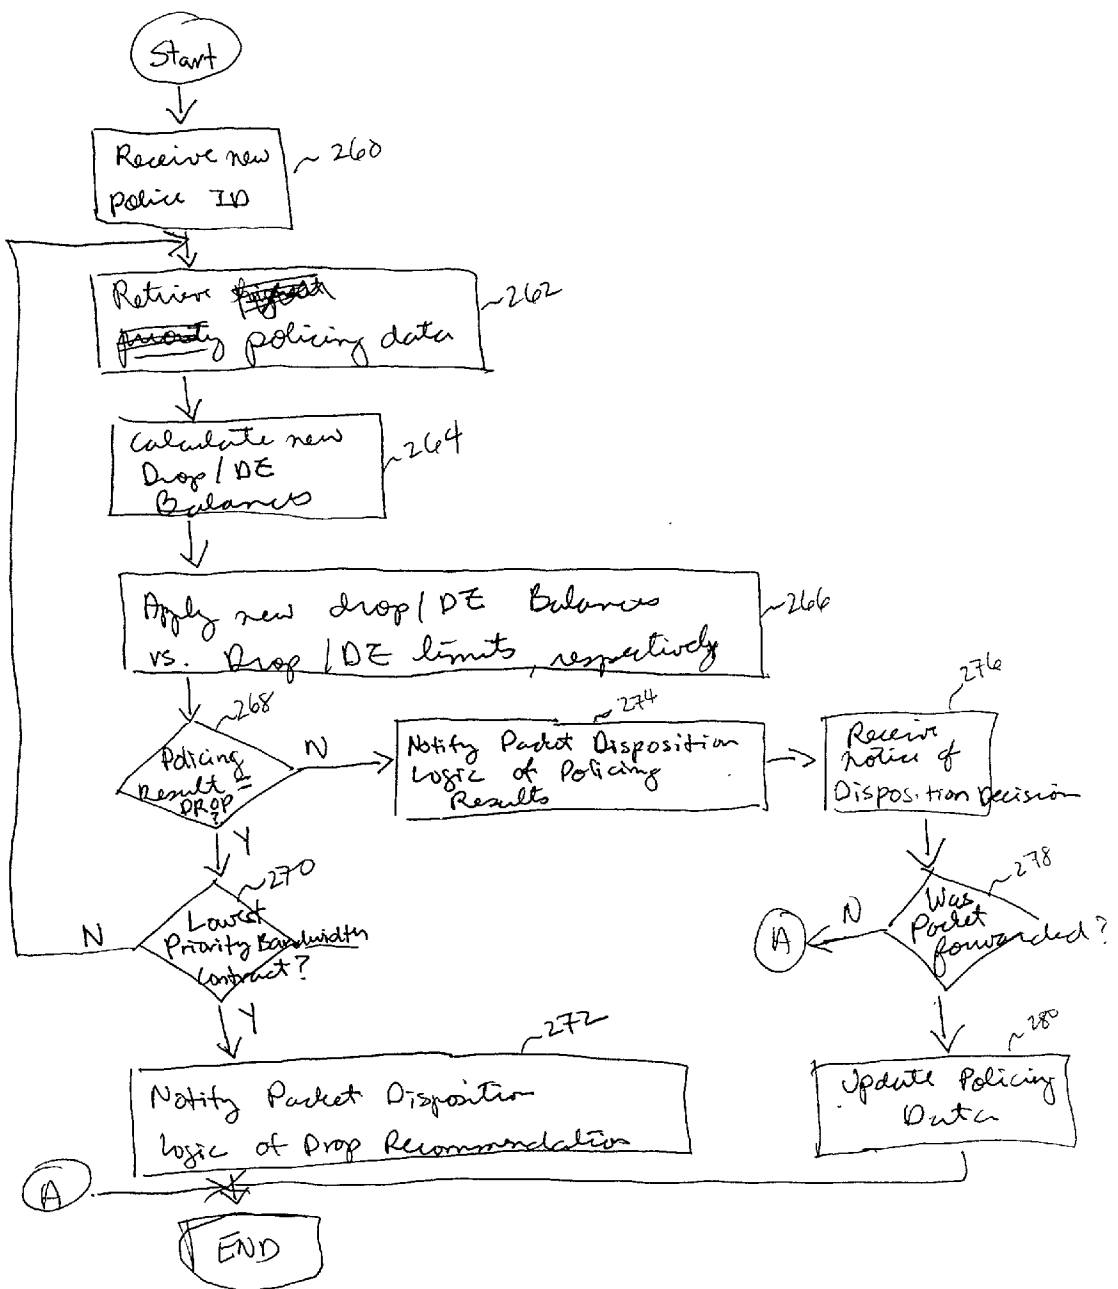 Start
Receive new
police ID
260
Retrieve highest
priority policing data
262
Calculate new
Drop/DE
Balances
264
Apply new drop/DE Balances
vs. Drop/DE limits, respectively
266
268
Policing
Result =
DROP
?
N
Y
274
Notify Packet Disposition
Logic of Policing
Results
276
Receive
notice of
Disposition Decision
270
Lowest
Priority Bandwidth
Contract?
N
Y
278
Was
Packet
forwarded?
N
A
272
Notify Packet Disposition
Logic of Drop Recommendation
280
Update Policing
Data
A
END